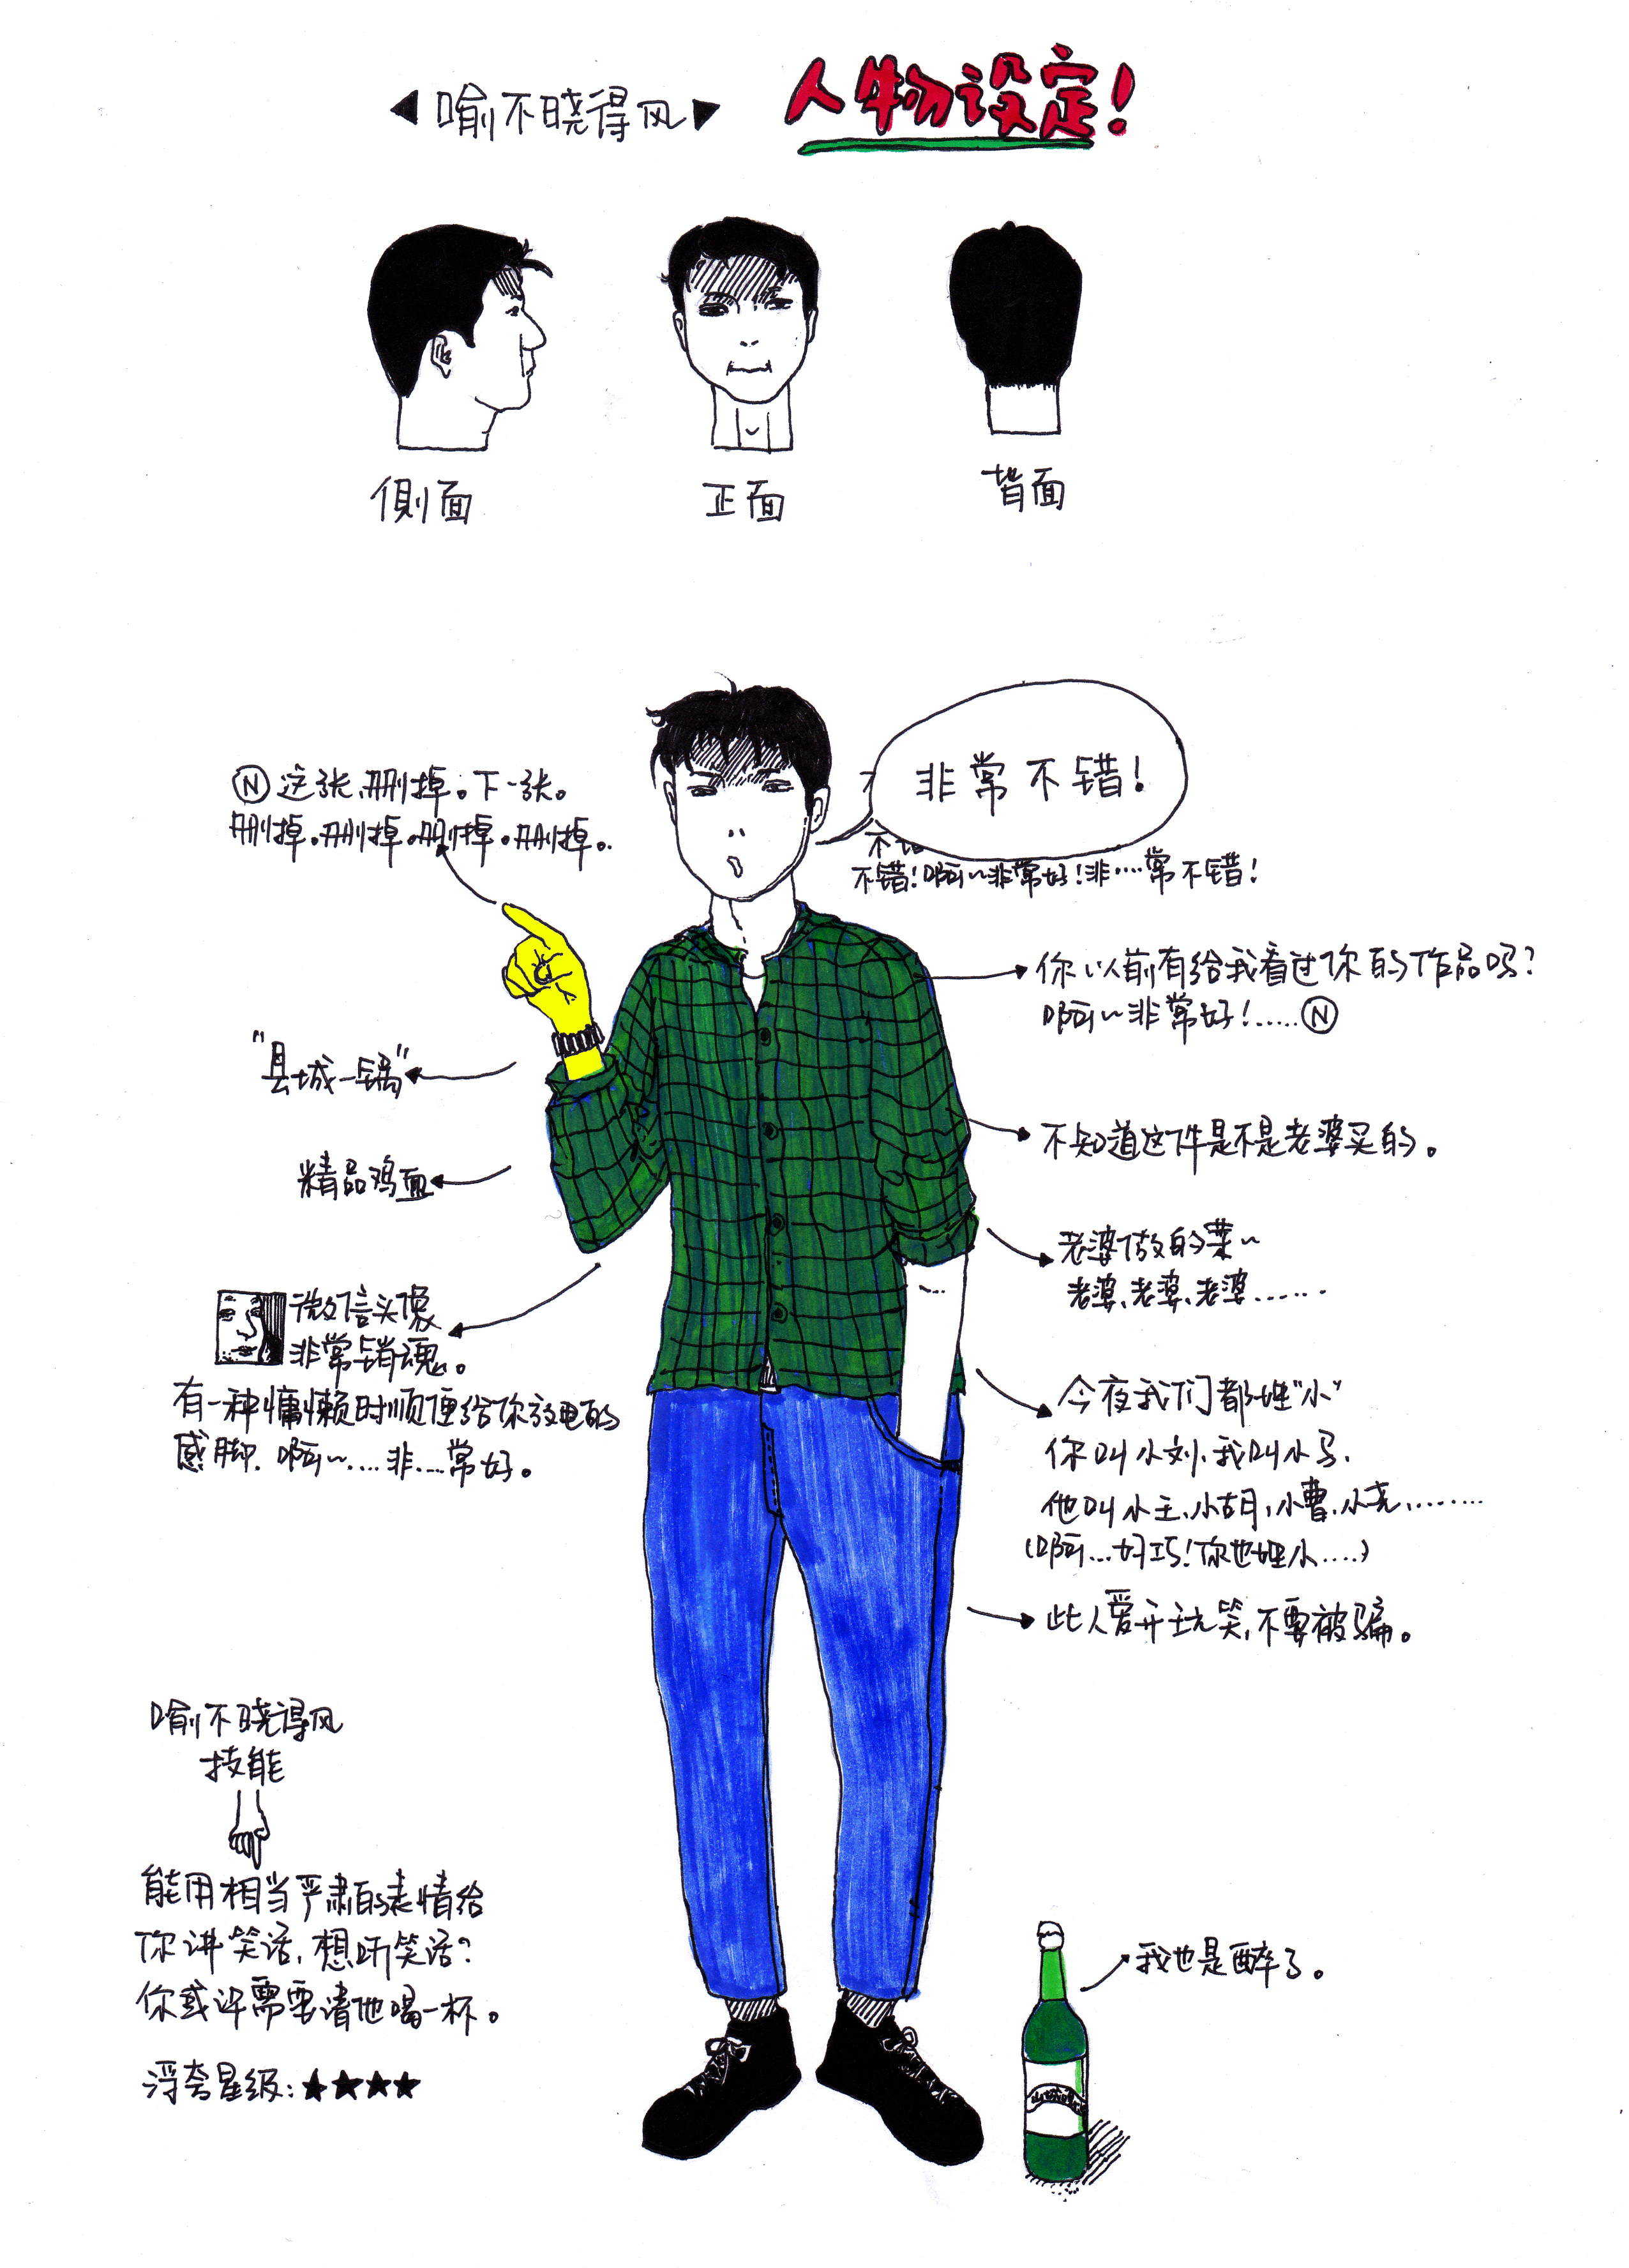 喻不晓得风
人物设定！
侧面
正面
背面
Ⓝ这张,删掉。下一张。
删掉。删掉。删掉。删掉。
非常不错！
不错
不错！啊～非常好！非……常不错！
你以前有给我看过你的作品吗？
啊～非常好！……Ⓝ
"县城一锅"
不知道这件是不是老婆买的。
精品鸡血
老婆做的菜～
老婆、老婆、老婆……
微信头像
非常销魂。
有一种慵懒时顺便给你放电的
感脚。啊～……非……常好。
今夜我们都姓"小"
你叫小刘、我叫小马、
他叫小王、小胡、小曹、小尧、……
(啊…好巧！你也姓小……)
此人爱开玩笑,不要被骗。
喻不晓得风
技能
能用相当严肃的表情给
你讲笑话,想听笑话？
你或许需要请他喝一杯。
浮夸星级：★★★★
我也是醉了。